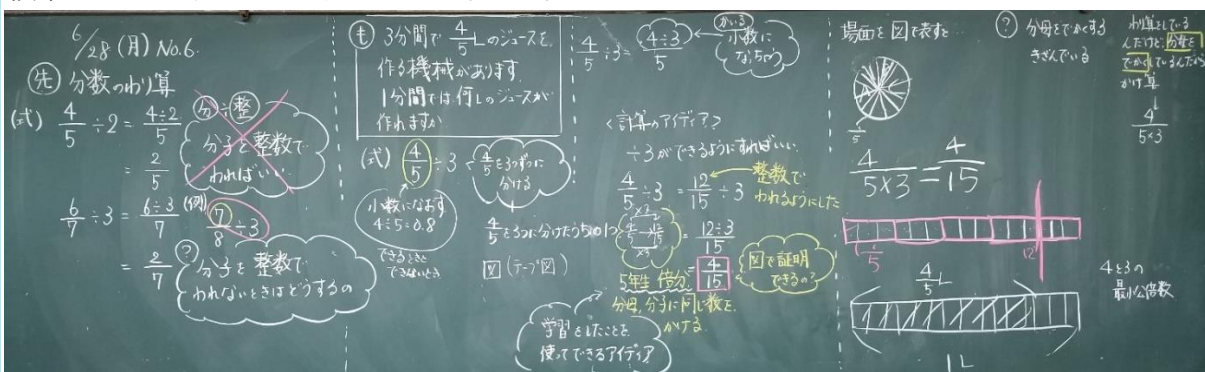 6/28 (月) No.6.
先 分数のわり算
(式) 4/5 ÷ 2 = 4÷2/5
= 2/5
6/7 ÷ 3 = 6÷3/7
= 2/7
分÷整
分子を整数で
わればいい
(例) 7/8 ÷ 3
? 分子を整数で
われないときはどうするの
も 3分間で 4/5 Lのジュースを
作る機械があります
1分間では何Lのジュースが
作れますか
(式) 4/5 ÷ 3
4/5を3つずつに
分ける
小数になおす
4÷5=0.8
できるときと
できないとき
4/5を3つに分けたうちの1つ
図 (テープ図)
4/5 ÷ 3 = 4÷3/5
小数に
なっちゃう
<計算のアイディア>
÷3ができるようにすればいい
4/5 ÷ 3 = 12/15 ÷ 3
整数で
われるようにした
×3
4/5 = 12/15
×3
= 12÷3/15
= 4/15
図で証明
できるの?
5年生 倍分
分母,分子に同じ数を
かける
学習をしたことを
使ってできるアイディア
場面を図で表すと
1/5
4/5×3 = 4/15
1/5
12
4/5 L
1L
? 分母をでかくする
きざんでいる
わり算をしている
んだけど,分母を
でかくしているんだから
かけ算
4/5×3
4と3の
最小公倍数